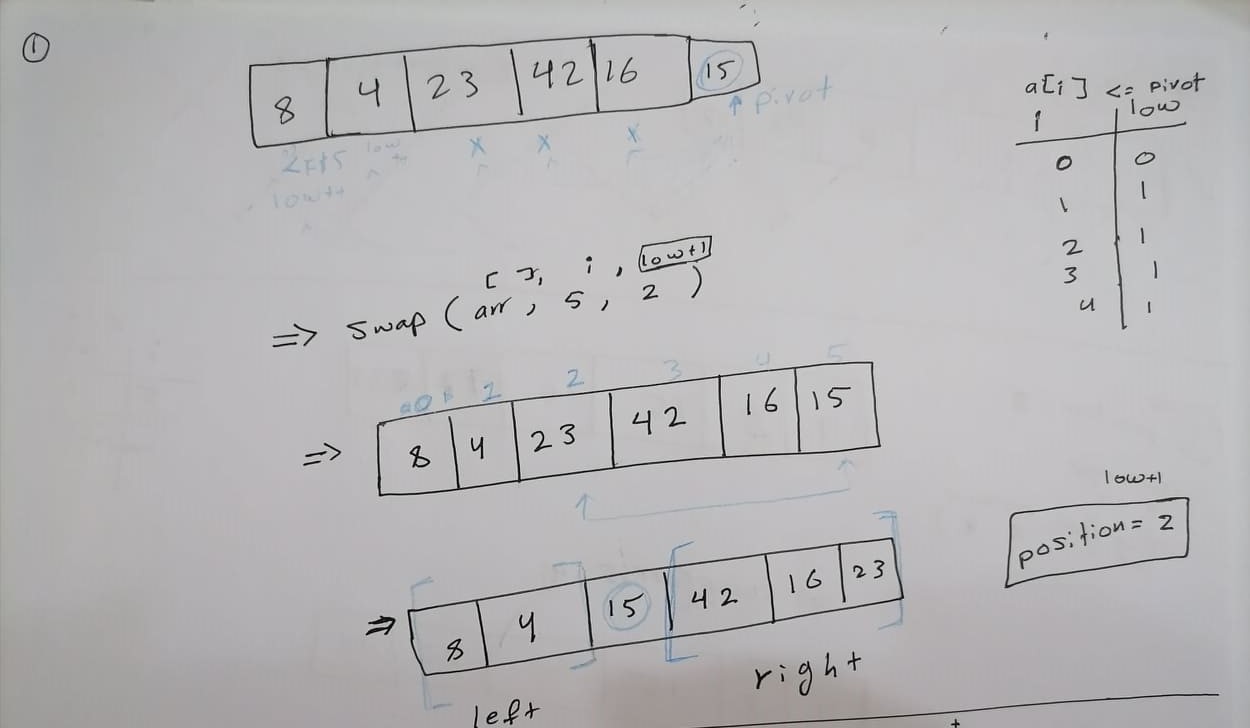 1
8 4 23 42 16 15
↑ pivot
low++
x x x
low++
a[i] <= pivot
i low
0 0
1 1
2 1
3 1
4 1
[ ], i, low+1
=> swap (arr, 5, 2)
0 1 2 3 4 5
=> 8 4 23 42 16 15
low+1
position = 2
=> 8 4 15 42 16 23
left right